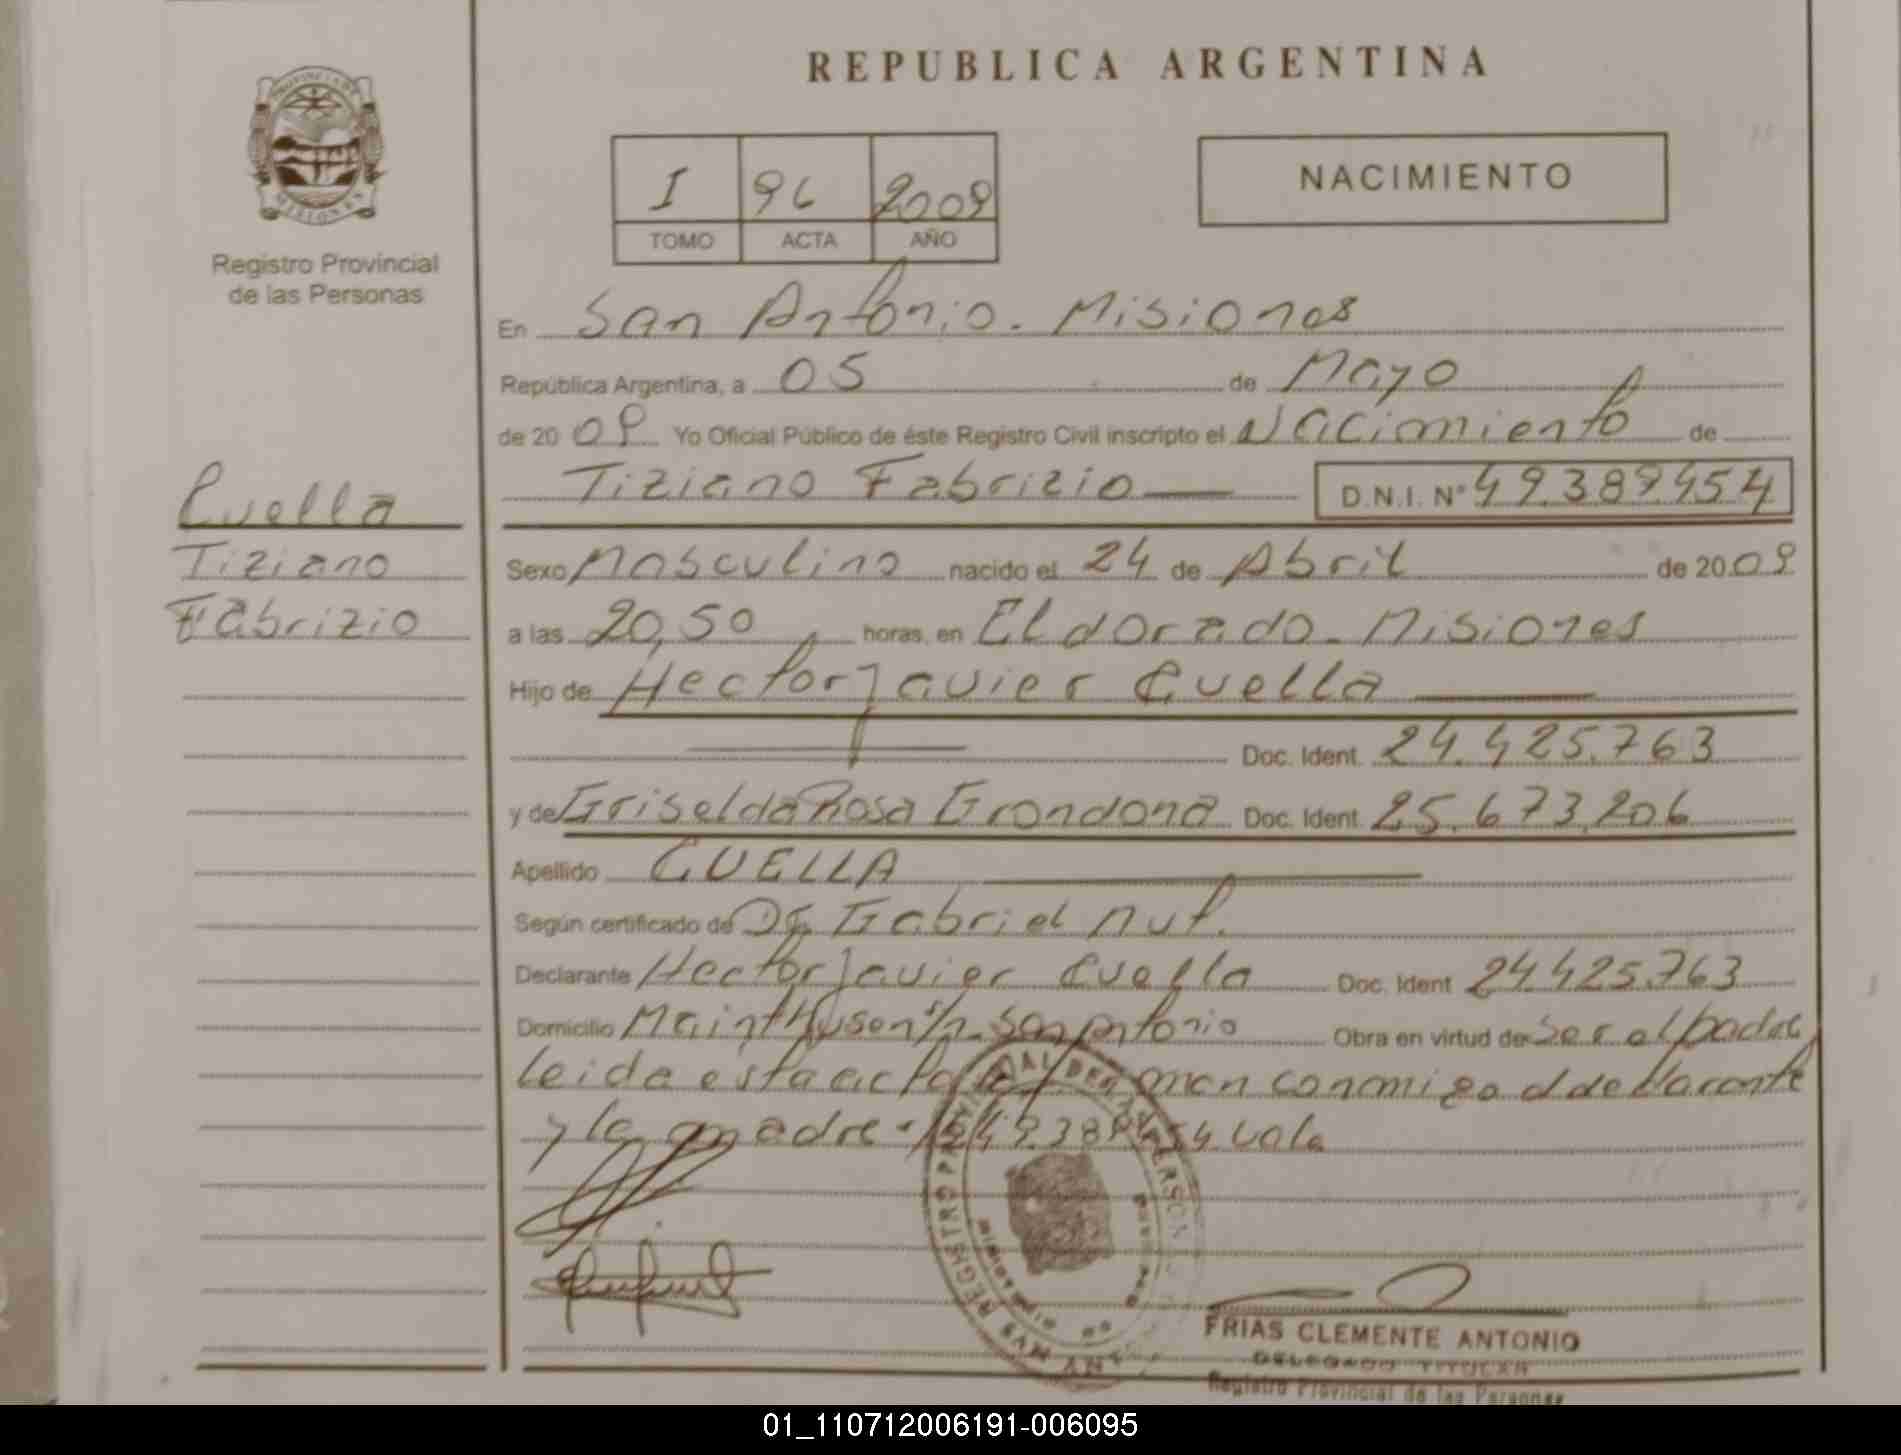 REPUBLICA ARGENTINA
PROVINCIA DE
MISIONES
Registro Provincial
de las Personas
I 96 2009
TOMO ACTA AÑO
NACIMIENTO
En San Antonio. Misiones
República Argentina, a 05 de Mayo
de 20 09 Yo Oficial Público de éste Registro Civil inscripto el Nacimiento de
Tiziano Fabrizio D.N.I. Nº 49.389.454
Cuella
Tiziano
Fabrizio
Sexo Masculino nacido el 24 de Abril de 20 09
a las 20,50 horas, en Eldorado - Misiones
Hijo de Hector Javier Cuella
Doc. Ident. 24.425.763
y de Griselda Rosa Grondona Doc. Ident. 25.673.206
Apellido CUELLA
Según certificado de Dr. Gabriel
Declarante Hector Javier Cuella Doc. Ident 24.425.763
Domicilio s/n. San Antonio Obra en virtud de ser el padre
leida esta acta la conmigo el declarante
y la madre. 49.389.454. vale
REGISTRO PROVINCIAL DE LAS PERSONAS
FRIAS CLEMENTE ANTONIO
DELEGADO TITULAR
Registro Provincial de las Personas
01_110712006191-006095